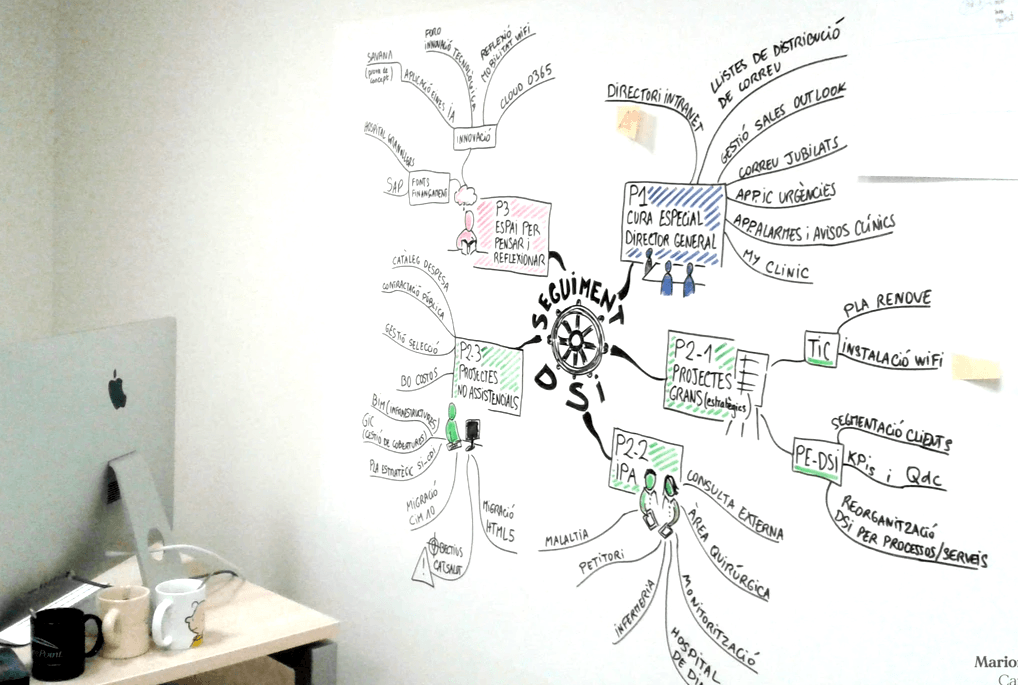 SEGUIMENT
DSi
P1
CURA ESPECIAL
DIRECTOR GENERAL
DIRECTORI INTRANET
LLISTES DE DISTRIBUCIÓ
DE CORREU
GESTIÓ SALES OUTLOOK
CORREU JUBILATS
APP.IC URGÈNCIES
APP.ALARMES i AVISOS CLÍNICS
MY CLINIC
P2-1
PROJECTES
GRANS (estratègics
TiC
PLA RENOVE
INSTALACIÓ WiFi
PE-DSi
SEGMENTACIÓ CLIENTS
KPis i Qdc
REORGANITZACIÓ
DSi PER PROCESSOS/SERVEIS
P2-2
iPA
CONSULTA EXTERNA
ÀREA QUIRÚRGICA
MONITORITZACIÓ
HOSPITAL
DE
INFERMERIA
PETITORI
MALALTIA
P2-3
PROJECTES
NO ASSISTENCIALS
CATÀLEG DESPESA
CONTRACTACIÓ PÚBLICA
GESTIÓ SELECCIÓ
BO COSTOS
BIM (INFRAESTRUCTURES)
GIC
(GESTIÓ DE COBERTURES)
PLA ESTRATÈGIC SI-CDI
MIGRACIÓ
CIM 10
OBJECTIUS
CATSALUT
MIGRACIÓ
HTML5
P3
ESPAI PER
PENSAR i
REFLEXIONAR
FONTS
FINANÇAMENT
HOSPITAL GRANOLLERS
SAP
INNOVACIÓ
SAVANA
(prova de
concept)
APLICACIONS IA
FORO
INNOVACIÓ TECNOLÒGICA
REFLEXIÓ
MOBILITAT WIFI
CLOUD O365